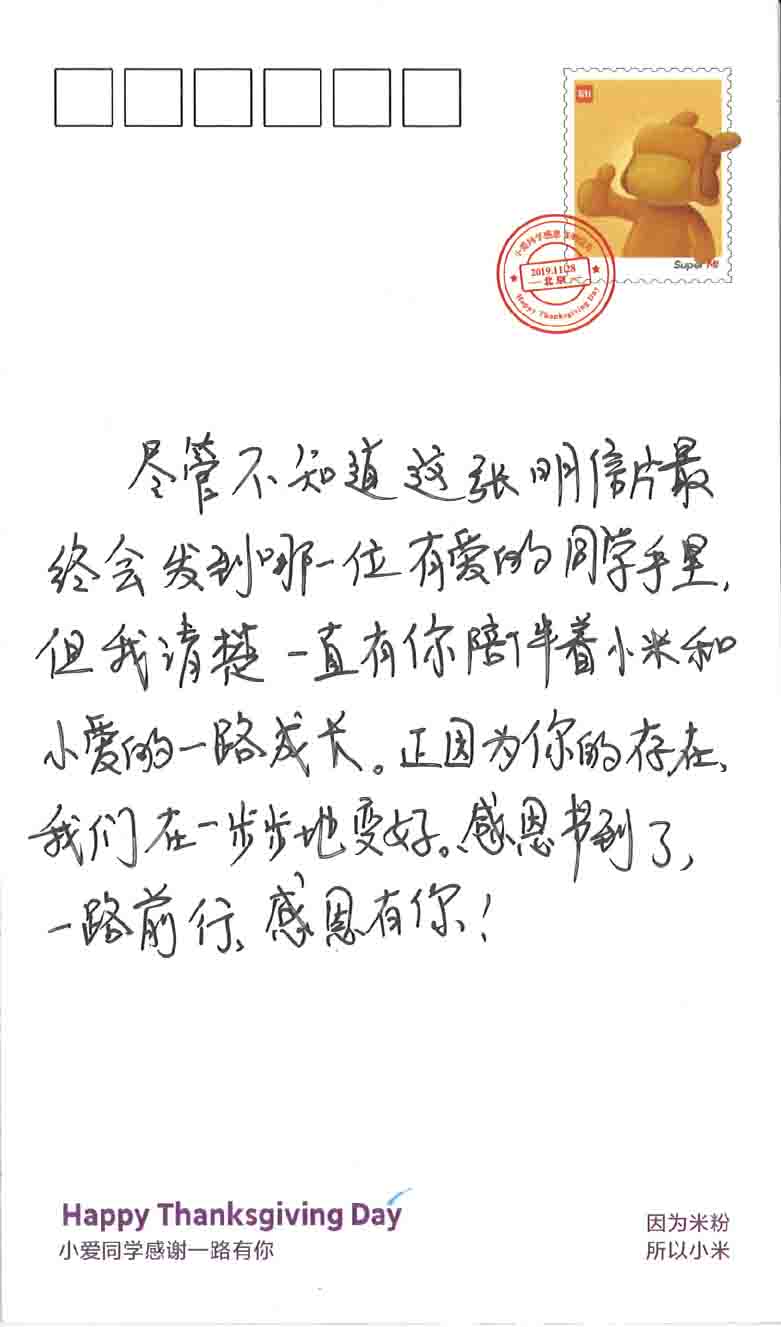 Super Mi
小爱同学感恩
2019.11.28
北京
Happy Thanksgiving Day
尽管不知道这张明信片最
终会发到哪一位有爱的同学手里,
但我清楚一直有你陪伴着小米和
小爱的一路成长。正因为你的存在,
我们在一步步地变好。感恩节到了,
一路前行,感恩有你!
Happy Thanksgiving Day
小爱同学感谢一路有你
因为米粉
所以小米